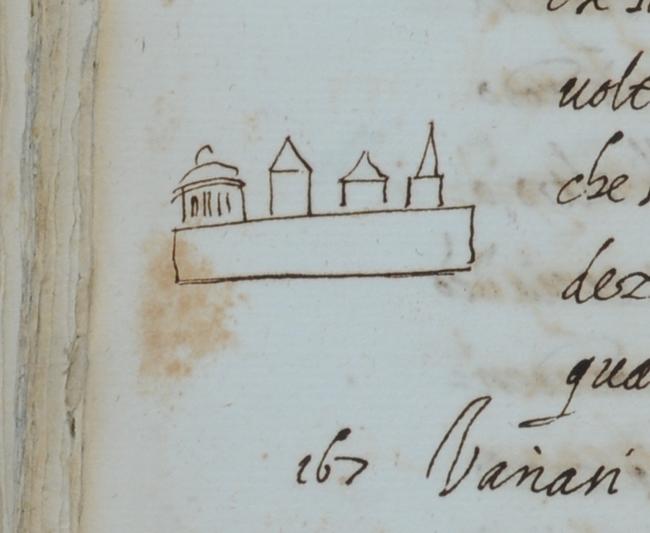 uolt
che
dez
qua
167 Variati